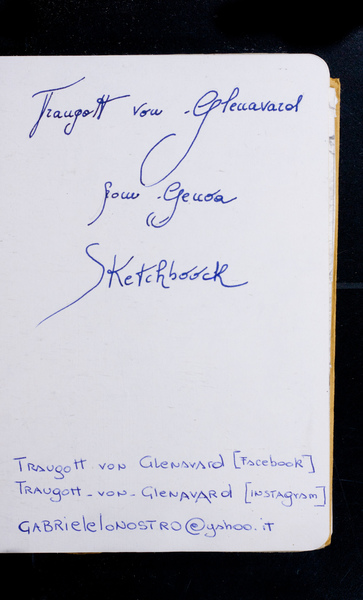 Traugott von Glenavard
from Genoa
Sketchboock
Traugott von Glenavard [Facebook]
Traugott-von-Glenavard [instagram]
GABRielelonostro@yahoo.it